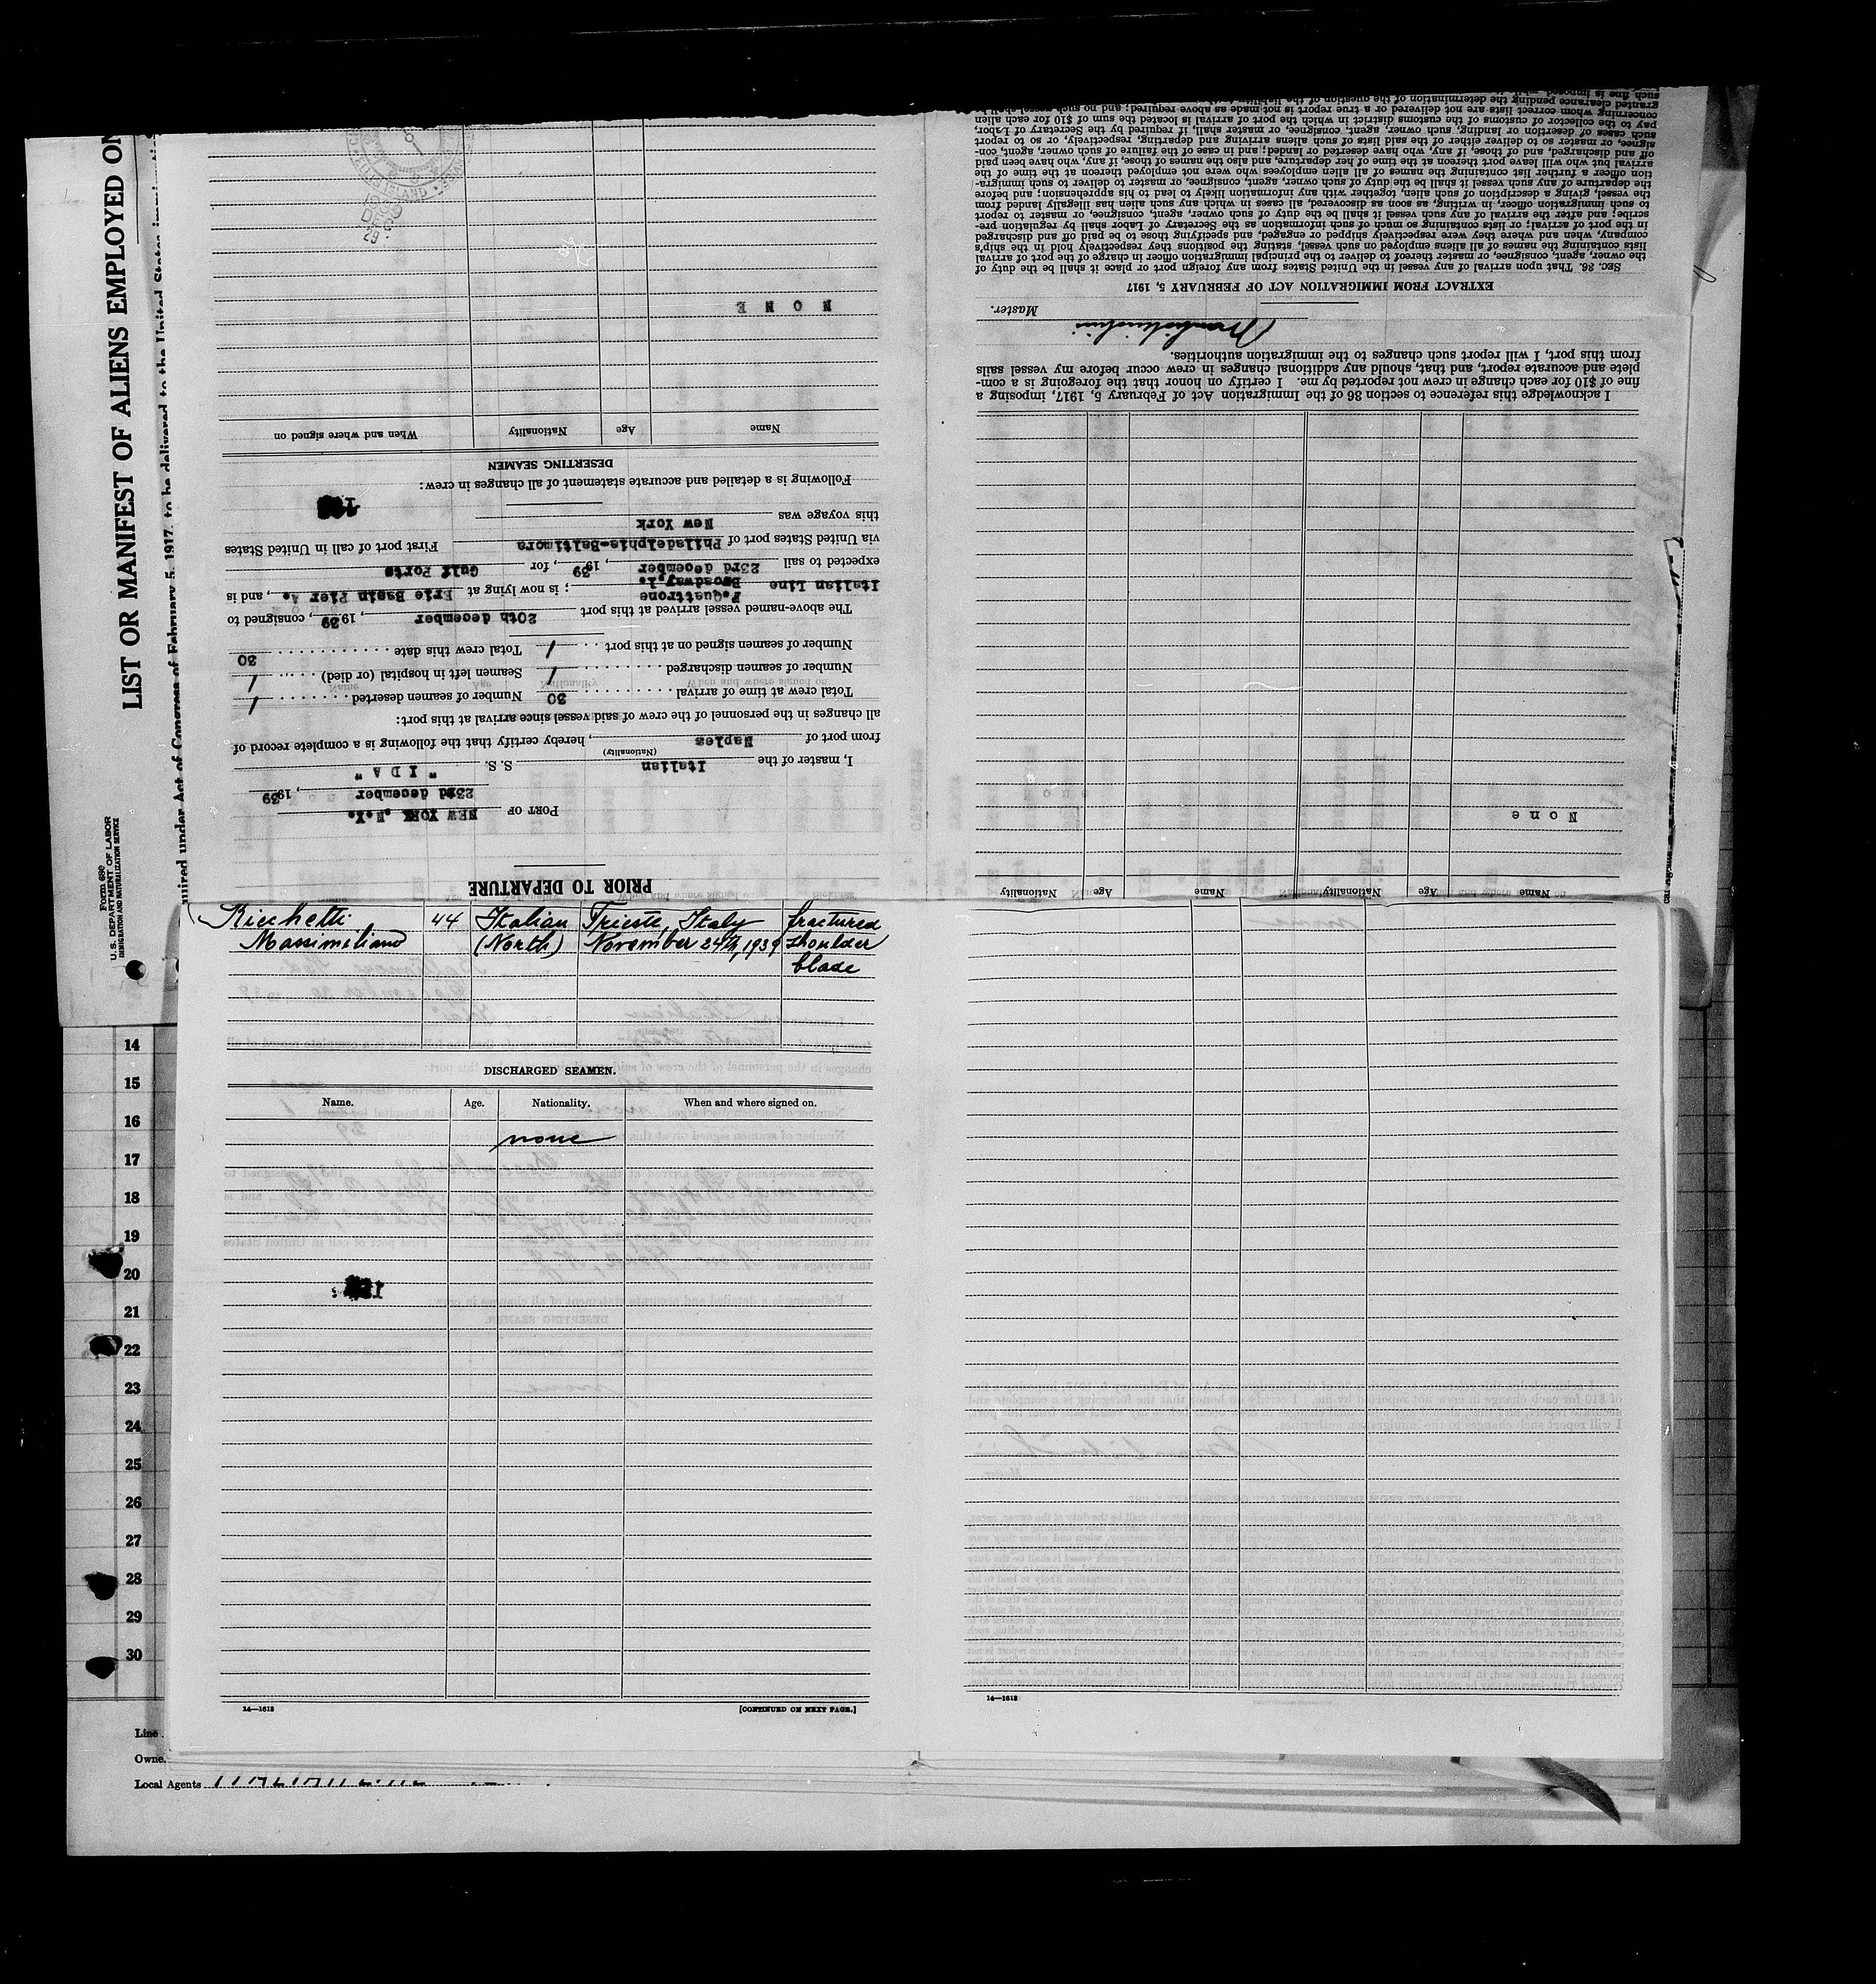 LIST OR MANIFEST OF ALIENS EMPLOYED ON
Form 680
U.S. DEPARTMENT OF LABOR
IMMIGRATION AND NATURALIZATION SERVICE
quired under Act of Congress of February 5, 1917, to be delivered to the United States
PRIOR TO DEPARTURE
PORT OF NEW YORK .N.Y.
23rd december, 1939
I, master of the Italian S. S. " I D A "
(Nationality)
from port of Naples, hereby certify that the following is a complete record of
all changes in the personnel of the crew of said vessel since arrival at this port:
Total crew at time of arrival 30 Number of seamen deserted 1
Number of seamen discharged 1 Seamen left in hospital (or died) 1
Number of seamen signed on at this port 1 Total crew this date 30
The above-named vessel arrived at this port 20th december, 1939, consigned to
Italian Line Broadway.1. ; is now lying at Erie Basin Pier A., and is
expected to sail 23rd december, 1939, for Gulf Ports
via United States port of Philadelphia-Baltimora First port of call in United States
this voyage was New York
Following is a detailed and accurate statement of all changes in crew:
DESERTING SEAMEN
Name Age Nationality When and where signed on
N O N E
Name Age Nationality Name Age Nationality
N o n e
I acknowledge this reference to section 36 of the Immigration Act of February 5, 1917, imposing a
fine of $10 for each change in crew not reported by me. I certify on honor that the foregoing is a com-
plete and accurate report, and that, should any additional changes in crew occur before my vessel sails
from this port, I will report such changes to the immigration authorities.
Master.
EXTRACT FROM IMMIGRATION ACT OF FEBRUARY 5, 1917
SEC. 36. That upon arrival of any vessel in the United States from any foreign port or place it shall be the duty of
the owner, agent, consignee, or master thereof to deliver to the principal immigration officer in charge of the port of arrival
lists containing the names of all aliens employed on such vessel, stating the positions they respectively hold in the ship's
company, when and where they were respectively shipped or engaged, and specifying those to be paid off and discharged
in the port of arrival; or lists containing so much of such information as the Secretary of Labor shall by regulation pre-
scribe; and after the arrival of any such vessel it shall be the duty of such owner, agent, consignee, or master to report
to such immigration officer, in writing, as soon as discovered, all cases in which any such alien has illegally landed from
the vessel, giving a description of such alien, together with any information likely to lead to his apprehension; and before
the departure of any such vessel it shall be the duty of such owner, agent, consignee, or master to deliver to such immigra-
tion officer a further list containing the names of all alien employees who were not employed thereon at the time of the
arrival but who will leave port thereon at the time of her departure, and also the names of those, if any, who have been paid
off and discharged, and of those, if any, who have deserted or landed; and in case of the failure of such owner, agent, con-
signee, or master so to deliver either of the said lists of such aliens arriving and departing, respectively, or so to report
such cases of desertion or landing, such owner, agent, consignee, or master shall, if required by the Secretary of Labor,
pay to the collector of customs of the customs district in which the port of arrival is located the sum of $10 for each alien
concerning whom correct lists are not delivered or a true report is not made as above required; and no such vessel shall be
granted clearance pending the determination of the question of the liability
Ricchetti 44 Italian Trieste, Italy fractured
Massimiliano (North) November 24th, 1939 shoulder
blade
DISCHARGED SEAMEN.
Name. Age. Nationality. When and where signed on.
none
14
15
16
17
18
19
20
21
22
23
24
25
26
27
28
29
30
14—1613 [CONTINUED ON NEXT PAGE.]
14—1613
Line
Owne
Local Agents